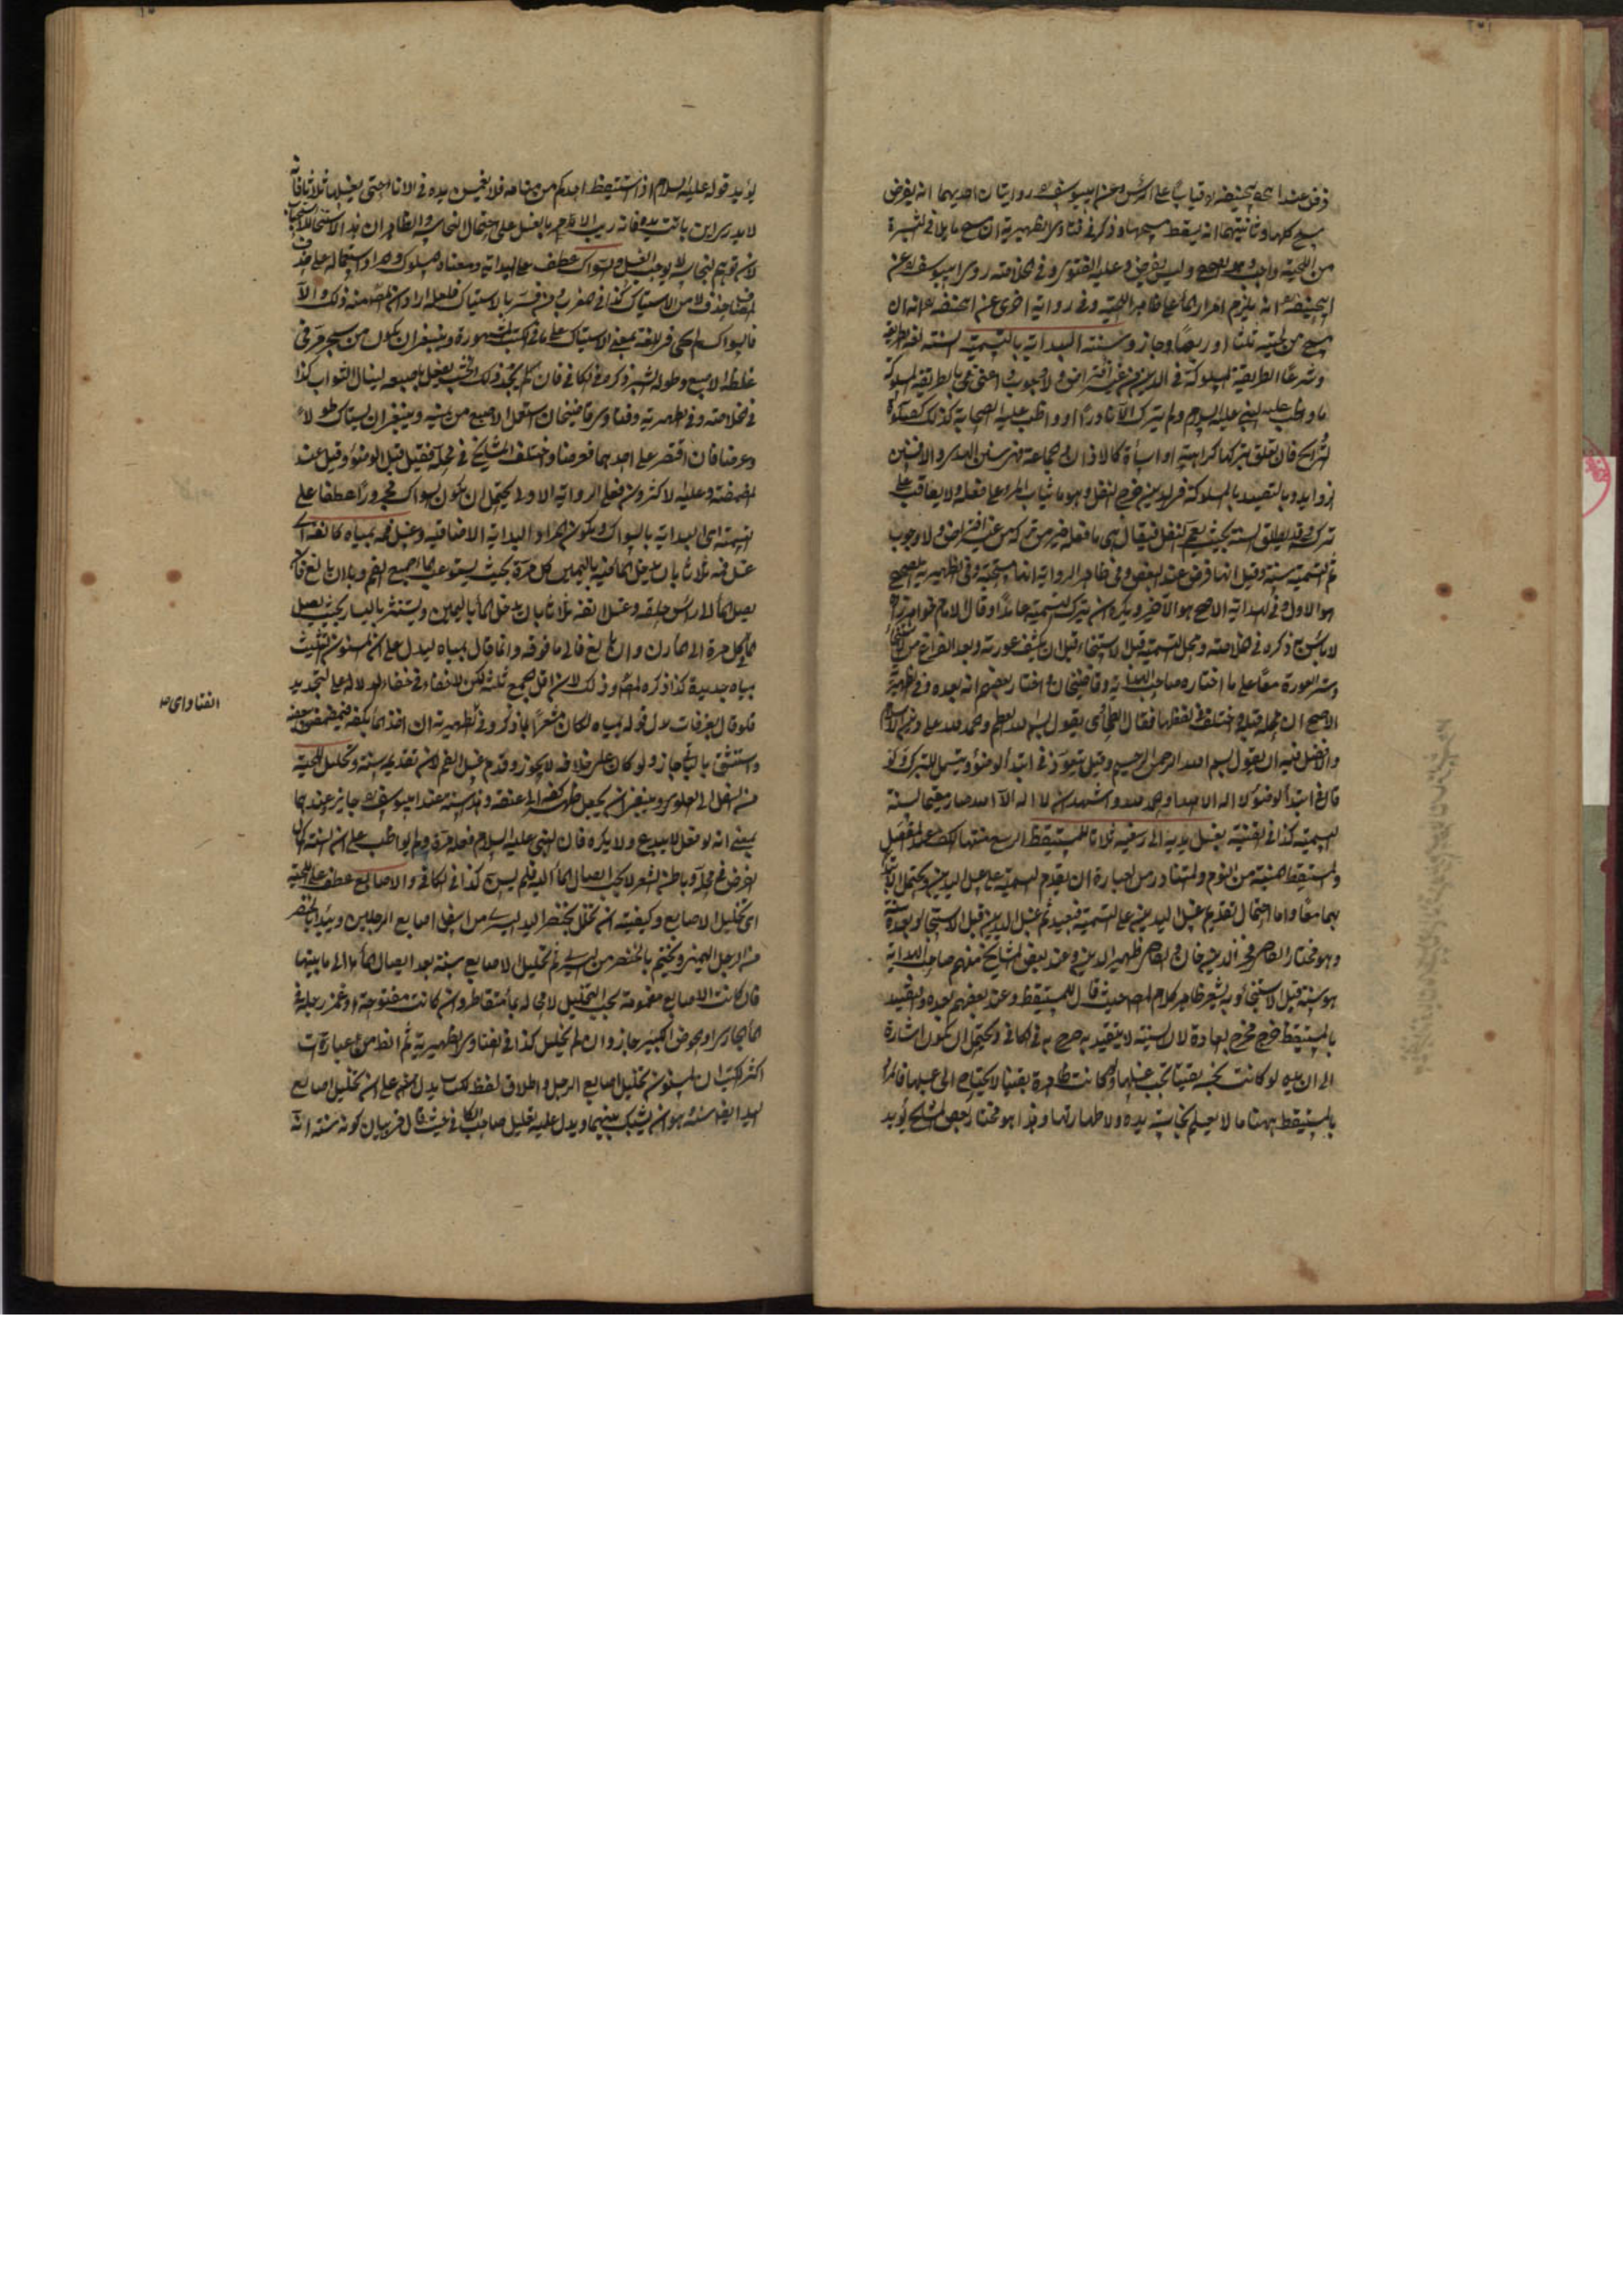 فرض عند ابي حنيفة قياسا على الرأس وعن ابي يوسف روايتان احديهما انه يفرض
مسح كلها وثانيتهما انه يسقط مسحها وذكر في فتاوى الظهيرية ان مسح ما يلاقي البشرة
من اللحية واجب وليس بفرض وعليه الفتوى وفي الخلاصة روى ابو يوسف عن
ابي حنيفة انه يلزم امرار الماء على ظاهر اللحية وفي رواية اخرى عن ابي حنيفة انه ان
مسح من لحيته ثلثا او ربعا جاز وسنته البداية بالتسمية السنة لغة الطريقة
وشرعا الطريقة المسلوكة في الدين من غير افتراض ولا وجوب اعني بالطريقة المسلوكة
ما واظب عليه النبي عليه السلام ولم يترك الا نادرا او واظب عليه الصحابة كذلك كصلوة
التراويح فان تعلق بتركها كراهية او اساءة كالاذان والجماعة فهي سنن الهدى والا فسنن
الزوايد وبالتقييد بالمسلوكة في الدين خرج النفل وهو ما يثاب المرء على فعله ولا يعاقب على
تركه وقد يطلق السنة بحيث يعم النفل فيقال هي ما فعله خير من تركه من غير افتراض ولا وجوب
ثم التسمية سنة وقيل انها فرض عند البعض وفي ظاهر الرواية انها مستحبة وفي الظهيرية الصحيح
هو الاول وفي الهداية الاصح هو الآخر ويكره ان يترك التسمية عامدا وقال الامام خواهرزاده
لا بأس به ذكره في الخلاصة ومحل التسمية قبل الاستنجاء قبل ان يكشف عورته وبعد الفراغ من الاستنجاء
وستر العورة معا على ما اختاره صاحب الهداية وقاضيخان واختار بعضهم انه بعده وفي الظهيرية
الاصح ان محله قبله واختلف في لفظها فقال الطحاوي يقول بسم الله العظيم والحمد لله على دين الاسلام
والافضل فيه ان يقول بسم الله الرحمن الرحيم وقيل يتعوذ في ابتداء الوضوء ويتسمى للتبرك ولو
قال في ابتداء الوضوء لا اله الا الله او الحمد لله او اشهد ان لا اله الا الله صار مقيما لسنة
التسمية كذا في القنية يغسل يديه الى رسغيه ثلاثا للمستيقظ الرسغ منتهى الكف عند المفصل
والمستيقظ المنتبه من النوم والمتبادر من العبارة ان يقدم التسمية على غسل اليدين ويحتمل الابتداء
بهما معا واما احتمال تقديم غسل اليدين على التسمية فبعيد ثم غسل اليدين قبل الاستنجاء وبعده سنة
وهو مختار القاضي فخر الدين خان والقاضي ظهير الدين وعند بعض المشايخ منهم صاحب الهداية
هو سنة قبل الاستنجاء وبه يشعر ظاهر كلام المص حيث قال للمستيقظ وعند بعضهم بعده والتقييد
بالمستيقظ خرج مخرج العادة لان السنة لا يتقيد به صرح به في الكافي ويحتمل ان يكون اشارة
الى ان يده لو كانت نجسة يقينا يجب غسلها ولو كانت طاهرة يقينا لا يحتاج الى غسلها فالمراد
بالمستيقظ ههنا ما لا يعلم نجاسة يده ولا طهارتها وهذا هو مختار بعض المشايخ يؤيد
يؤيده قوله عليه السلام اذا استيقظ احدكم من منامه فلا يغمسن يده في الاناء حتى يغسلها ثلاثا فانه
لا يدري اين باتت يده فانه ريب الامر بالغسل على احتمال النجاسة والظاهر ان هذا الاستنجاء للاستحباب
لان توهم النجاسة لا يوجب الغسل والسواك عطف على البداية ومعناه المسلوك والمراد استعماله على حذف
المضاف من الاستياك كذا في المغرب ومن فسر بالاستياك فلعله اراد انه المقصود منه ذلك والا
فالسواك لم يجئ في اللغة بمعنى الاستياك على ما في الكتب المشهورة وينبغي ان يكون من شجر مر في
غلظ الاصبع وطوله الشبر ذكره في الكافي فان لم يجد ذلك الخشب يفعل باصبعه لينال الثواب كذا
في الخلاصة وفي الظهيرية وفتاوى قاضيخان استعمل الاصبع من يمينه وينبغي ان يستاك طولا
وعرضا فان اقتصر على احدهما فعرضا واختلف المشايخ في محله فقيل قبل الوضوء وقيل عند
المضمضة وعليه الاكثرون فعلى الرواية الاولى يحتمل ان يكون السواك مجرورا عطفا على
التسمية اى البداية بالسواك ويكون المراد البداية الاضافية وغسل فمه بمياه كانفه اى
غسل فمه ثلاثا بان يدخل الماء فيه باليمين كل مرة بحيث يستوعب الماء جميع الفم وبان بالغ فان
يصل الماء الى رأس حلقه وغسل انفه ثلاثا بان يدخل الماء باليمين ويستنثر باليسار بحيث يصل
الماء كل مرة الى المارن وان بالغ فالى ما فوقه وانما قال بمياه ليدل على ان المسنون التثليث
بمياه جديدة كذا ذكره المصنف وذلك لان اقل الجمع ثلثة لكن لاخفاء في خفاء الدلالة على التجديد
فلو قال بغرفات بدل قوله بمياه لكان مشعرا بما ذكر وفي الظهيرية ان اخذ الماء بكفه فتمضمض ببعضه
واستنشق بالباقي جاز ولو كان على خلافه لا يجوز وقدم غسل الفم لان تقديمه سنة وتخليل اللحية
من اسفل الى العلو وينبغي ان يجعل ظهر كفه الى عنقه وهذا سنة عند ابي يوسف جايز عندهما
بمعنى انه لو فعل لا يبدع ولا يكره فان النبي عليه السلام فعله مرة ولم يواظب على ان السنة اكمال
الفرض في محله وباطن الشعر لا يجب ايصال الماء اليه فلم يسن كذا في الكافي والاصابع عطف على اللحية
اى تخليل الاصابع وكيفيته ان يخلل بخنصر اليد اليسرى من اسفل اصابع الرجلين ويبتدأ بخنصر
من الرجل اليمنى ويختم بالخنصر من اليسرى ثم تخليل الاصابع سنة بعد ايصال الماء الى ما بينها
فان كانت الاصابع مضمومة يجب التخليل لا محالة بماء متقاطر وان كانت مفتوحة او غمز رجله في
الماء الجاري او الحوض الكبير جاز وان لم يخلل كذا في الفتاوى الظهيرية ثم الظاهر من عبارات
اكثر الكتب ان المسنون تخليل اصابع الرجل واطلاق لفظ الكتاب يدل على ان تخليل اصابع
اليد ايضا سنة هو ان يشبك بينهما ويدل عليه تعليل صاحب الكافي حيث قال في بيان كونه سنة انه
الفتاوى